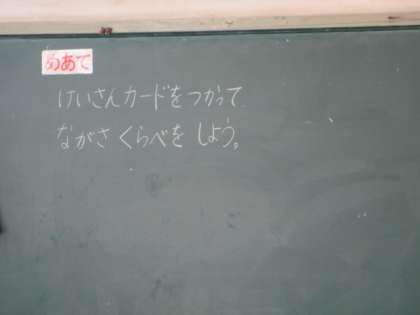 めあて
けいさんカードをつかって
ながさくらべをしよう。